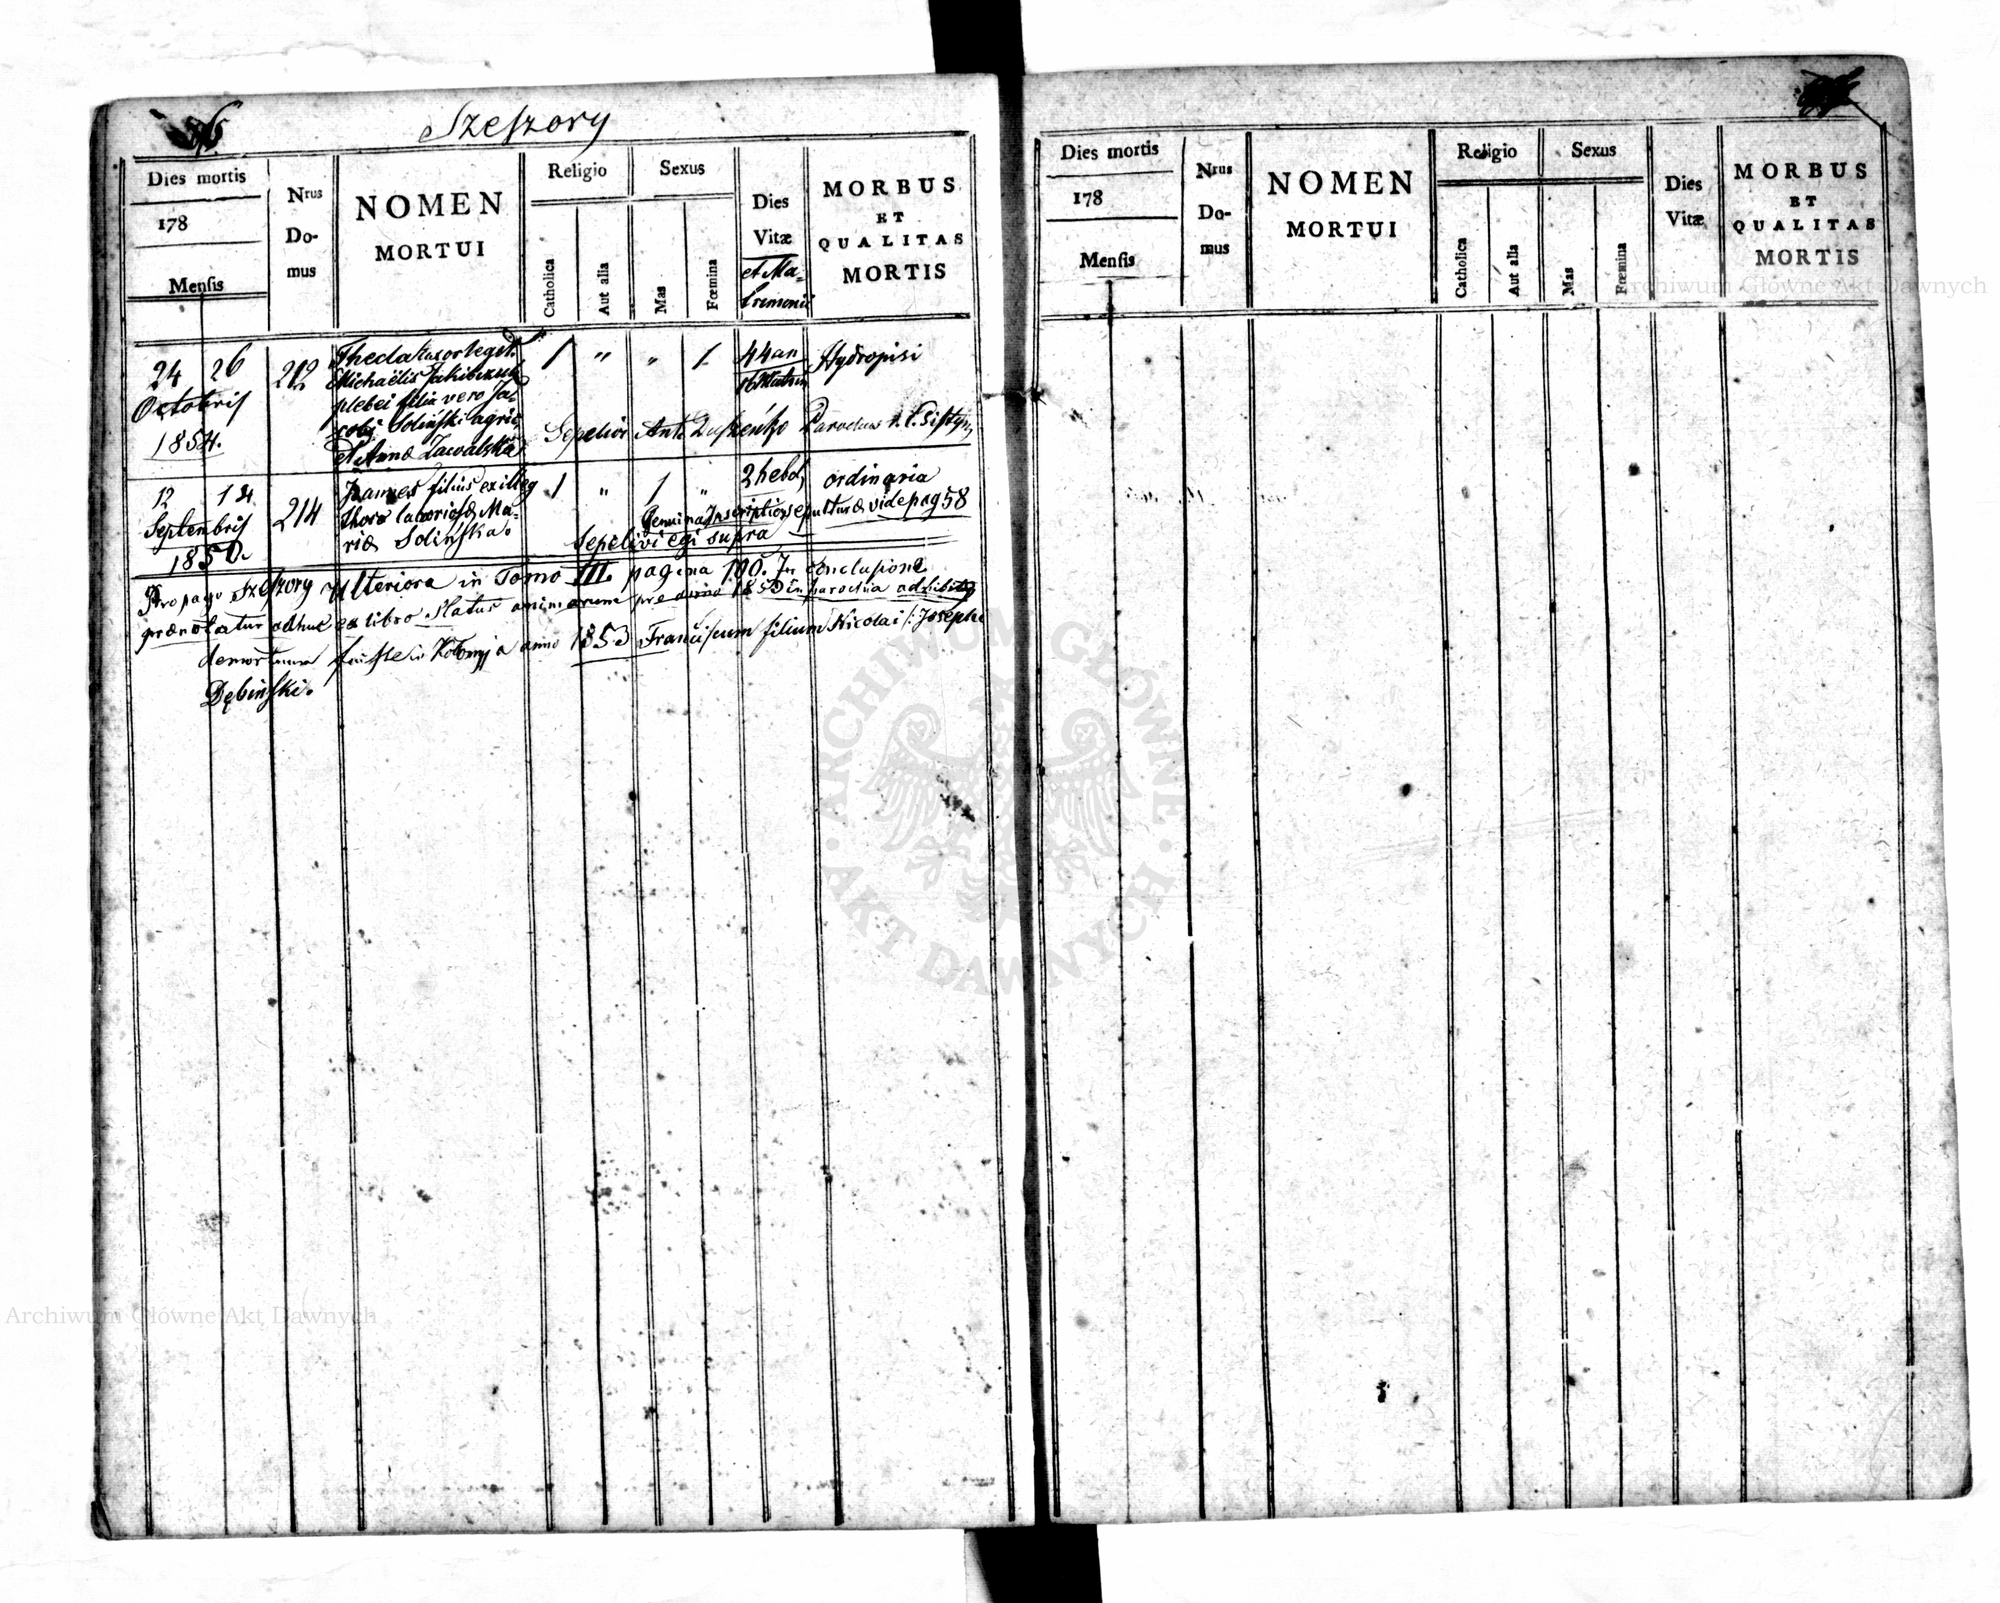 Szeszory
Dies mortis
178
Mensis
Nrus
Do-
mus
NOMEN
MORTUI
Religio
Catholica
Aut alia
Sexus
Mas
Fœmina
Dies
Vitæ
et Ma-
trimonii
MORBUS
ET
QUALITAS
MORTIS
24 26
Octobris
1854.
212
Thecla uxor legit.
Michaëlis
plebei filia vero Ja-
cobi Soliński agric.
et Annæ Zawalska
1 " " 1
44 an
16 Matrim
Hydropisi
Sepelivi Ant. Parochus r. l. Pistyn
12 14
Septembris
1850.
214
Joannes filius ex illeg
thoro laboriosæ Ma-
riæ Solińska.
1 " 1 "
2 hebd,
ordinaria
Genuina Inscriptio sepulturæ vide pag 58
Sepelivi egi supra
Pro pago Szeszory Ulteriora in Tomo III. pagina 100. In conclusione
prænotatur adhuc ex libro Status animarum pro anno 1853 in parochia adhibito
demortuum fuisse in Kołomyja anno 1853 Franciscum filium Nicolai /: Josephi
Dębiński.
Dies mortis
178
Mensis
Nrus
Do-
mus
NOMEN
MORTUI
Religio
Catholica
Aut alia
Sexus
Mas
Fœmina
Dies
Vitæ
MORBUS
ET
QUALITAS
MORTIS
Archiwum Główne Akt Dawnych
ARCHIWUM GŁÓWNE · AKT DAWNYCH ·
Archiwum Główne Akt Dawnych